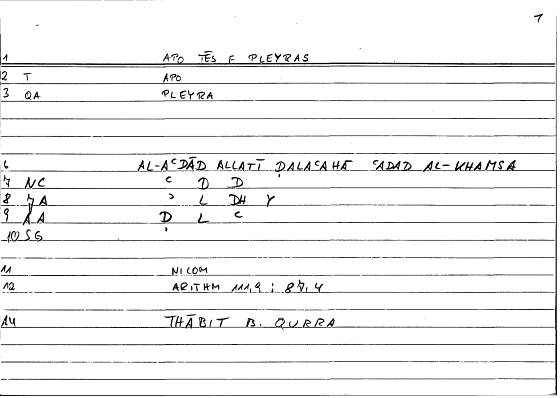 1
1 APO TĒS E PLEYRAS
2 T APO
3 QA PLEYRA
6 AL-AᶜDĀD ALLATĪ ḌALAᶜAHĀ ᶜADAD AL-KHAMSA
7 NC ᶜ D D
8 ʾ L DH Y
9 AA Ḍ L ᶜ
10 SG
11 NICOM
12 ARITHM 111,9 ; 87,4
A4 THĀBIT B. QURRA